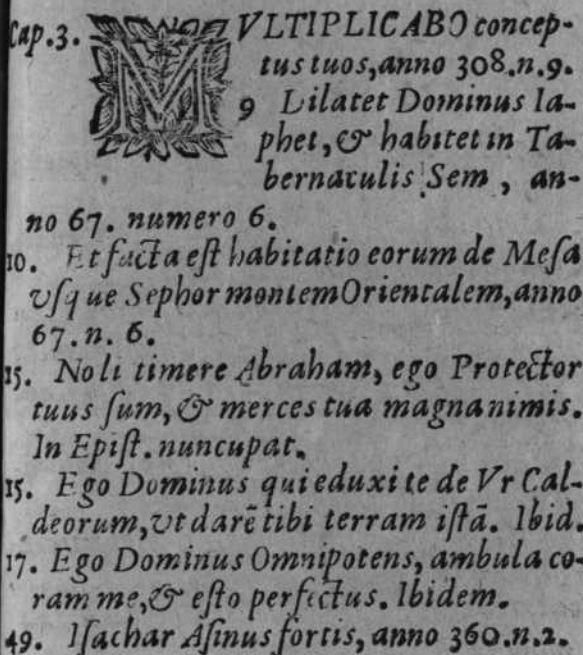 Cap.3. MVLTIPLICABO concep-
tus tuos, anno 308.n.9.
9 Dilatet Dominus Ia-
phet, & habitet in Ta-
bernaculis Sem, an-
no 67. numero 6.
10. Et facta est habitatio eorum de Mesa
vsque Sephor montem Orientalem, anno
67. n. 6.
15. Noli timere Abraham, ego Protector
tuus sum, & merces tua magna nimis.
In Epist. nuncupat.
15. Ego Dominus qui eduxi te de Vr Cal-
deorum, vt darē tibi terram istā. Ibid.
17. Ego Dominus Omnipotens, ambula co-
ram me, & esto perfectus. Ibidem.
49. Isachar Asinus fortis, anno 360.n.2.